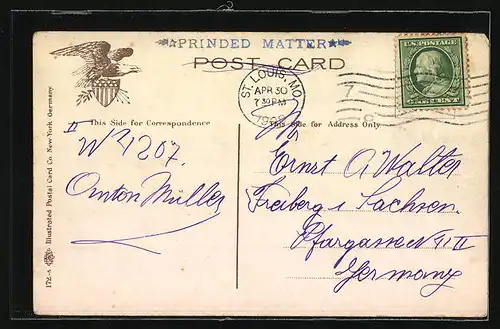 ☆PRINDED MATTER★
POST CARD
ST. LOUIS, MO.
APR 30
7 30 PM
U.S. POSTAGE
This Side for Correspondence
This Side for Address Only
II
W 4207.
Anton Müller
Ernst A. Walter
Freiberg i Sachsen.
Pfargasse N
Germany
172-6 Illustrated Postal Card Co. New-York, Germany.